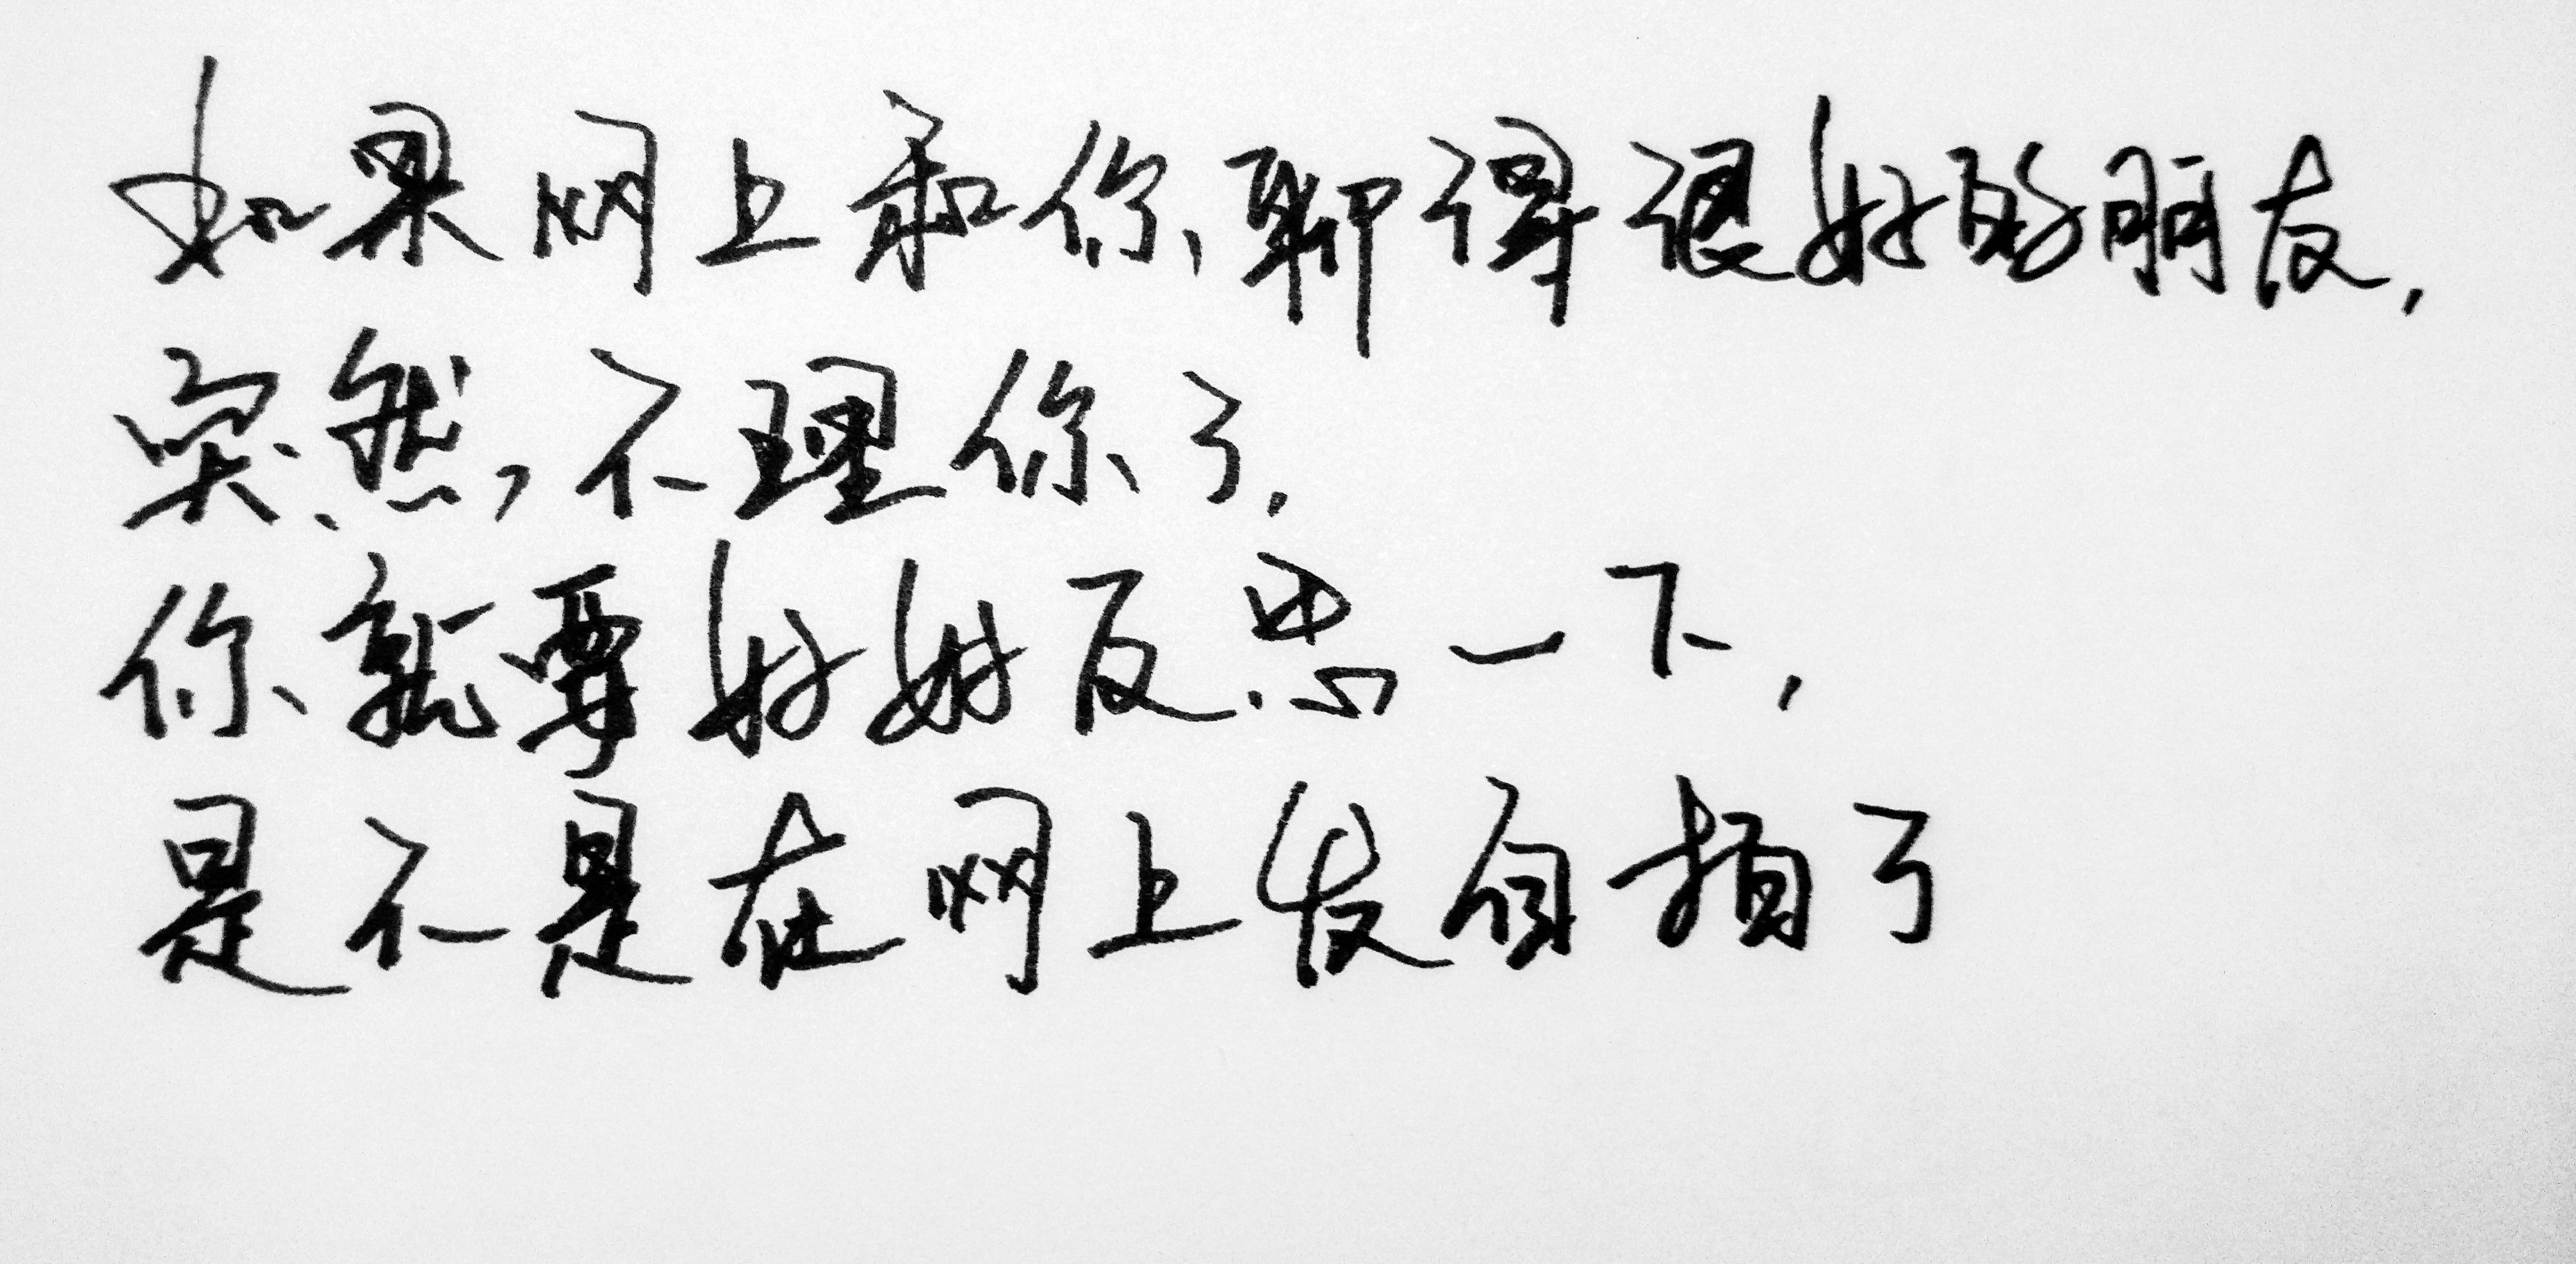 如果网上和你聊得很好的朋友，
突然，不理你了.
你就要好好反思一下，
是不是在网上发自拍了